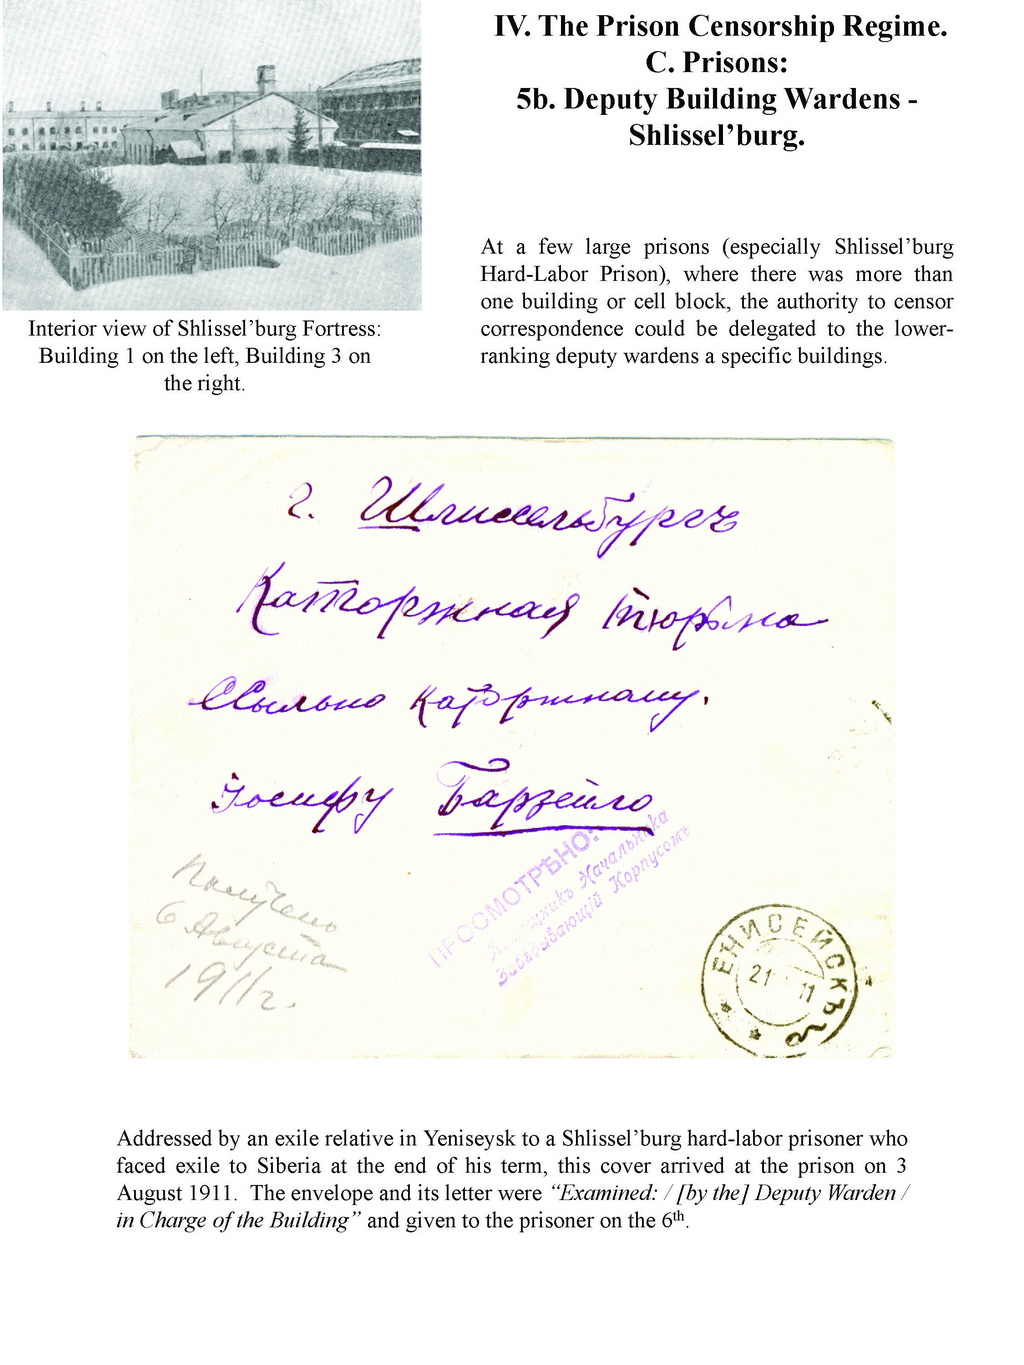 IV. The Prison Censorship Regime.
C. Prisons:
5b. Deputy Building Wardens -
Shlissel’burg.
At a few large prisons (especially Shlissel’burg
Hard-Labor Prison), where there was more than
one building or cell block, the authority to censor
correspondence could be delegated to the lower-
ranking deputy wardens a specific buildings.
Interior view of Shlissel’burg Fortress:
Building 1 on the left, Building 3 on
the right.
г. Шлиссельбургъ
Каторжная тюрьма
Ссыльно каторжному.
Іосифу Барзейло
ПРОСМОТРѢНО:
Помощникъ Начальника
Завѣдывающій Корпусомъ
Получено
6 Августа
1911 г.
ЕНИСЕЙСКЪ
21 11
Addressed by an exile relative in Yeniseysk to a Shlissel’burg hard-labor prisoner who
faced exile to Siberia at the end of his term, this cover arrived at the prison on 3
August 1911. The envelope and its letter were “Examined: / [by the] Deputy Warden /
in Charge of the Building” and given to the prisoner on the 6th.